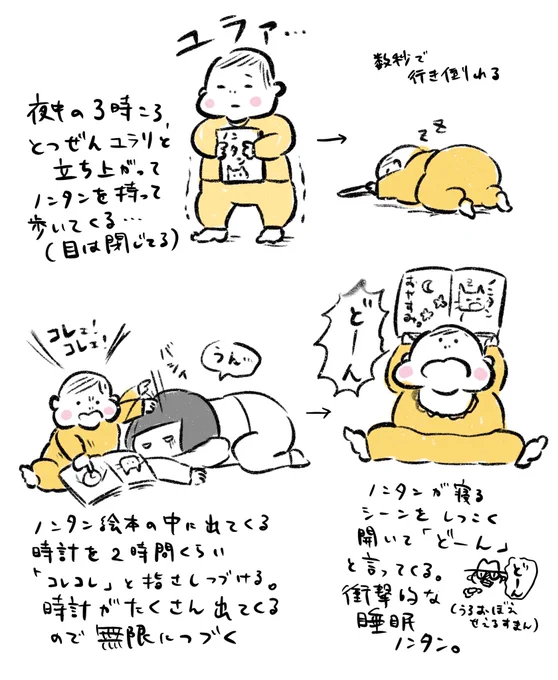 ユラァ…
夜中の3時ころ、
とつぜんユラリと
立ち上がって
ノンタンを持って
歩いてくる…
(目は閉じてる)
ノンタン
数秒で
行き倒れる
zz
コレて!
コレて!
うん゛
どーん
おやすみ
ノンタン絵本の中に出てくる
時計を2時間くらい
「コレコレ」と指さしつづける。
時計がたくさん出てくる
ので無限につづく
ノンタンが寝る
シーンをしつこく
開いて「どーん」
と言ってくる。
衝撃的な
睡眠
ノンタン。
どーん
(うろおぼえ
せぇるすまん)